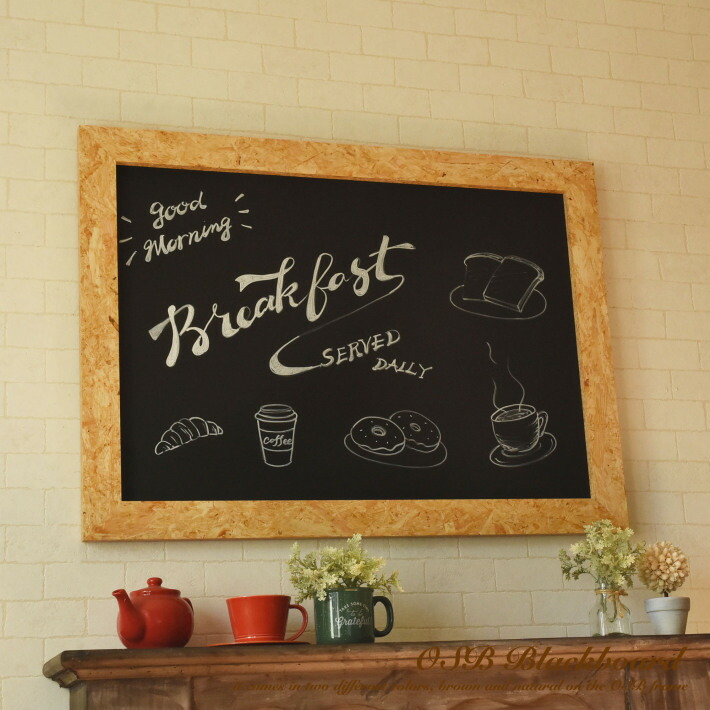 Good
Morning
Breakfast
SERVED
DAILY
Coffee
Grateful
OSB Blackboard
comes in two different colors, brown and natural on the OSB frame